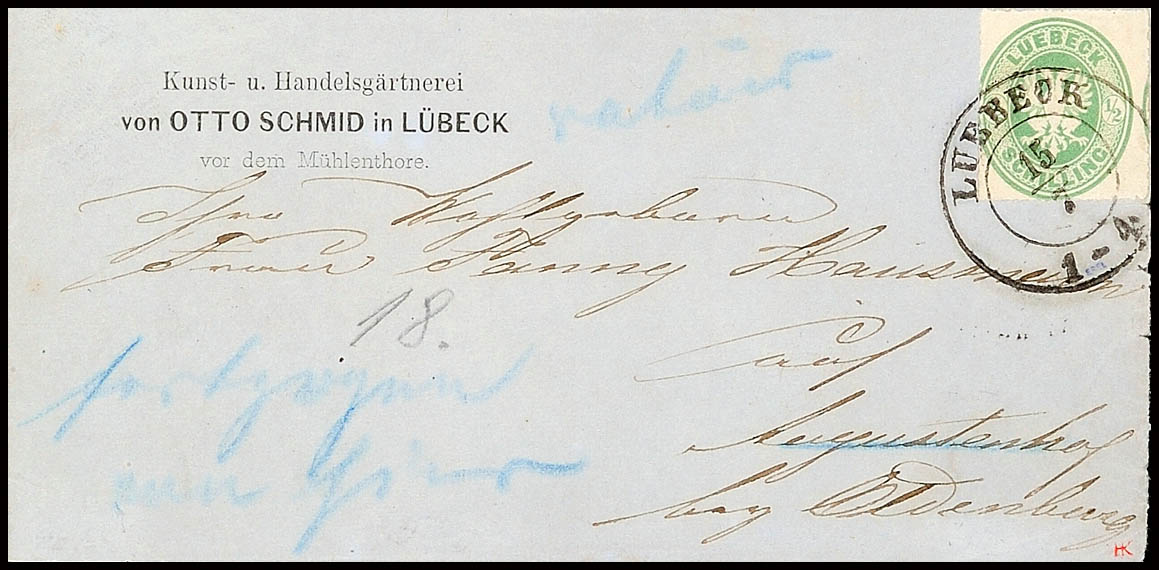 Kunst- u. Handelsgärtnerei
von OTTO SCHMID in LÜBECK
vor dem Mühlenthore.
LUEBECK
1/2
SCHILLING
LUEBECK
15
1-4
Ihro Wohlgeboren
Frau Fanny
18.
retour
auf
Augustenhof
bey Oldenburg
HK